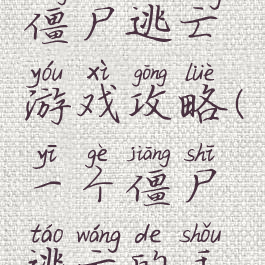 僵尸逃亡
yóu xì gōng lüè
游戏攻略(
yī gè jiāng shī
一个僵尸
táo wáng de shǒu